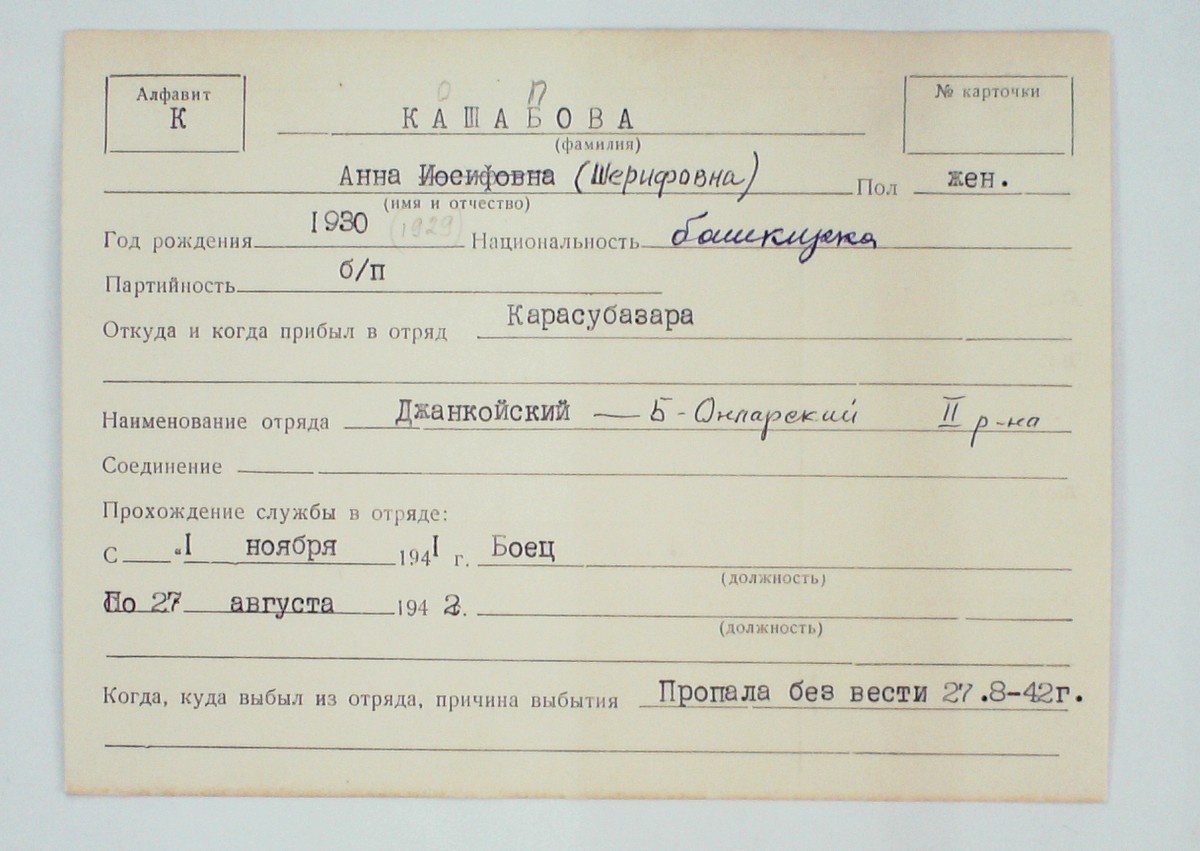 Алфавит
К
№ карточки
о п
КАШАБОВА
(фамилия)
Анна Иосифовна (Шерифовна) Пол жен.
(имя и отчество)
Год рождения 1930 (1929) Национальность башкирка
Партийность б/п
Откуда и когда прибыл в отряд Карасубазара
Наименование отряда Джанкойский — Б-Онларский II р-на
Соединение
Прохождение службы в отряде:
С „I ноября 194I г. Боец
(должность)
По 27 августа 194 2.
(должность)
Когда, куда выбыл из отряда, причина выбытия Пропала без вести 27.8-42г.